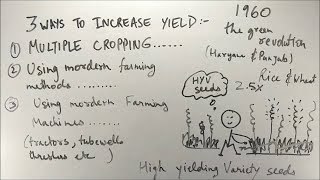 3 WAYS TO INCREASE YIELD :-
① MULTIPLE CROPPING......
② Using mordern farming
methods .........
③ Using mordern Farming
Machines ......
(tractors, tubewells
threshus etc)
1960
the green
revolution
(Haryana & Punjab)
Rice & Wheat
2.5x
HYV
seeds
High yielding Variety seeds